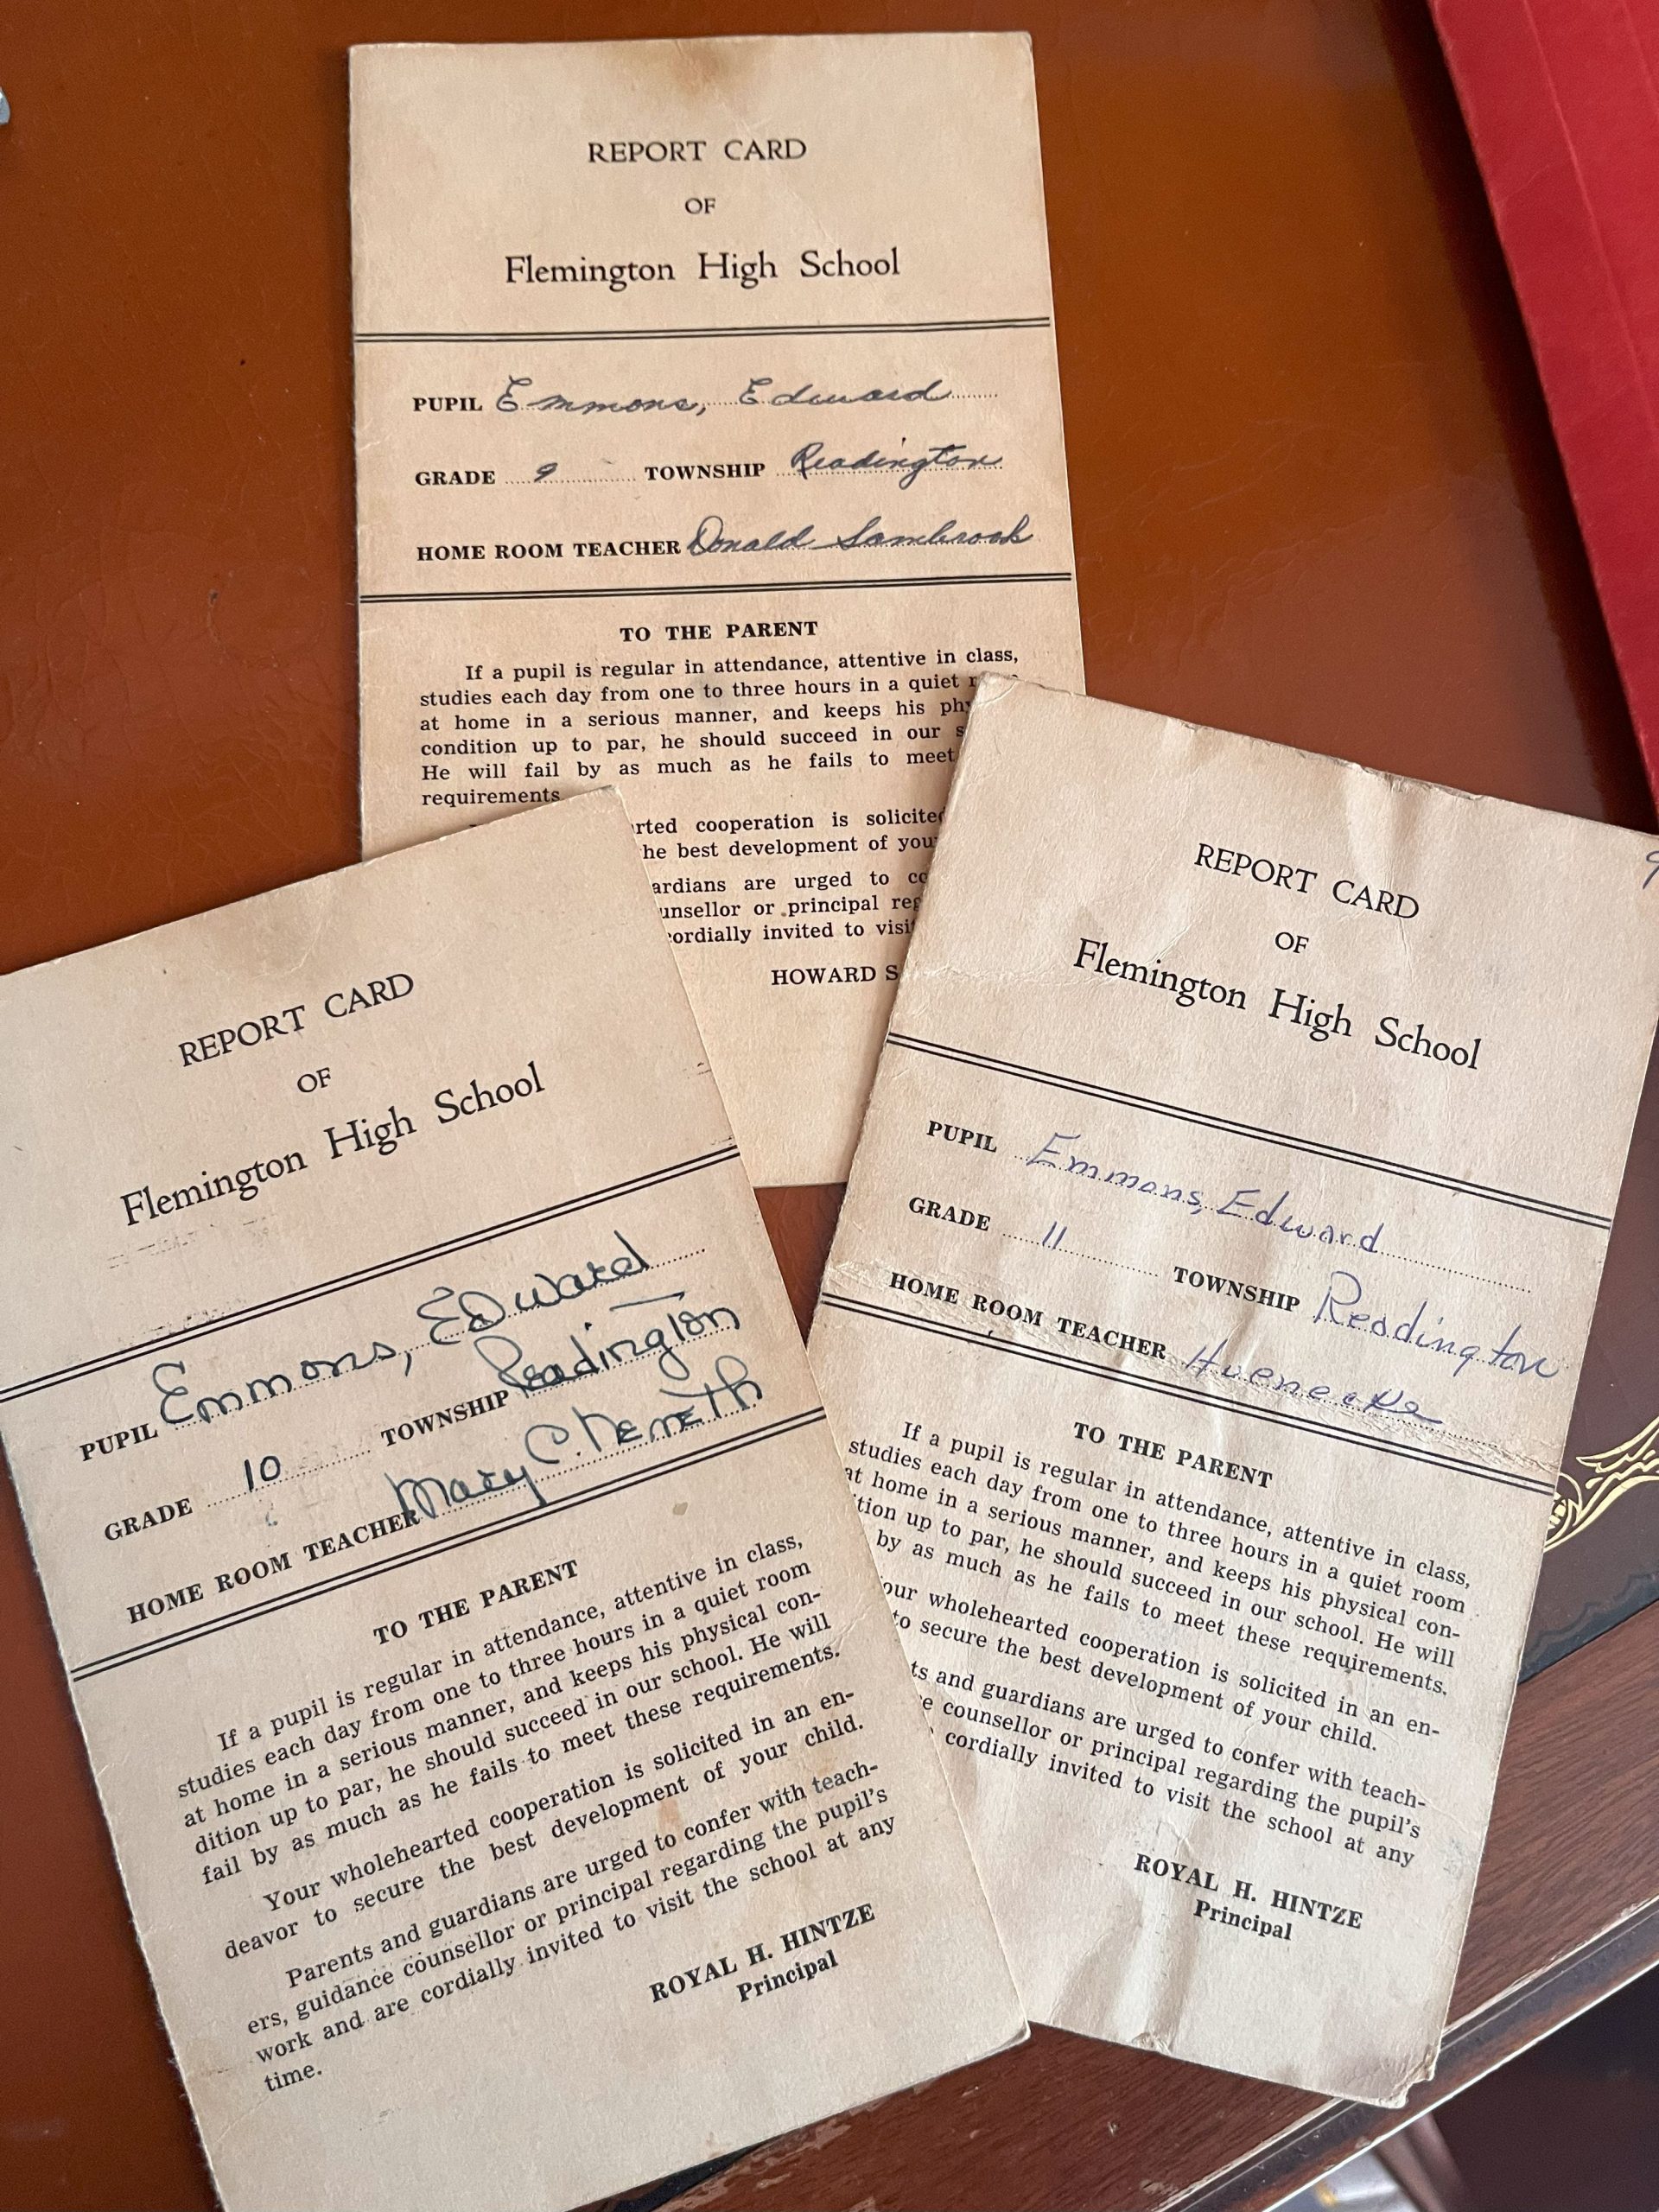 REPORT CARD
OF
Flemington High School
PUPIL Emmons, Edward
GRADE 9 TOWNSHIP Readington
HOME ROOM TEACHER Donald Sambrook
TO THE PARENT
If a pupil is regular in attendance, attentive in class,
studies each day from one to three hours in a quiet
at home in a serious manner, and keeps his
condition up to par, he should succeed in our
He will fail by as much as he fails to meet
requirements
cooperation is solicited
the best development of
are urged to
or principal
cordially invited to visit
HOWARD
REPORT CARD
OF
Flemington High School
PUPIL Emmons, Edward
GRADE 10 TOWNSHIP Readington
HOME ROOM TEACHER Mary C. Nemeth
TO THE PARENT
If a pupil is regular in attendance, attentive in class,
studies each day from one to three hours in a quiet room
at home in a serious manner, and keeps his physical con-
dition up to par, he should succeed in our school. He will
fail by as much as he fails to meet these requirements.
Your wholehearted cooperation is solicited in an en-
deavor to secure the best development of your child.
Parents and guardians are urged to confer with teach-
ers, guidance counsellor or principal regarding the pupil's
work and are cordially invited to visit the school at any
time.
ROYAL H. HINTZE
Principal
REPORT CARD
OF
Flemington High School
PUPIL Emmons, Edward
GRADE 11 TOWNSHIP Readington
HOME ROOM TEACHER Huenecke
TO THE PARENT
If a pupil is regular in attendance, attentive in class,
studies each day from one to three hours in a quiet room
at home in a serious manner, and keeps his physical con-
up to par, he should succeed in our school. He will
by as much as he fails to meet these requirements.
wholehearted cooperation is solicited in an en-
to secure the best development of your child.
and guardians are urged to confer with teach-
counsellor or principal regarding the pupil's
cordially invited to visit the school at any
ROYAL H. HINTZE
Principal